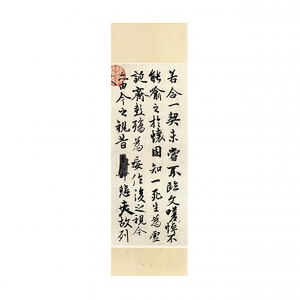 若合一契未嘗不臨文嗟悼不
能喻之於懷固知一死生為虛
誕齊彭殤為妄作後之視今
亦由今之視昔悲夫故列